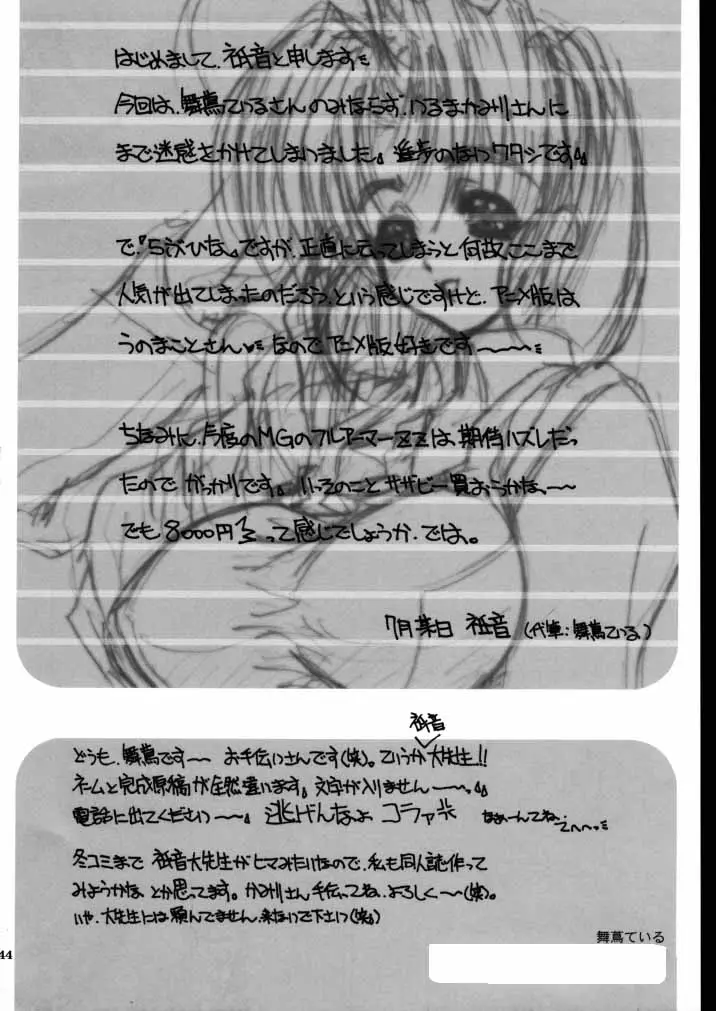 はじめまして、祇音と申します
今回は、舞蔦ているさんのみならず、ひるまかみ川さんに
まで迷惑をかけてしまいました。進歩のないワタシです。
で『らぶひな』ですが、正直に云ってしまうと何故、ここまで
人気が出てしまったのだろう、という感じですけど、アニメ版は、
うのまことさん なのでアニメ版好きです〜〜〜
ちなみに、今度のMGのフルアーマーZZは、期待ハズレだっ
たのでがっかりです。いっそのことサザビー買おうかな、〜〜
でも8000円 って感じでしょうか、では。
7月某日 祇音(代筆:舞蔦ている)
祇音
どうも、舞蔦です〜〜 お手伝いさんです(笑)。ていうか大先生!!
ネームと完成原稿が全然違います。文字が入りません〜〜。
電話に出てくださいっ〜〜。逃げんなよ コラァ なぁーんてね、てへへっ
冬コミまで 祇音大先生がヒマみたいなので、私も同人誌作って
みようかな、とか思ってます。かみ川さん手伝ってね、よろしく〜〜(笑)。
いや、大先生には頼んでません、来ないで下さいっ(笑)
舞蔦ている
44